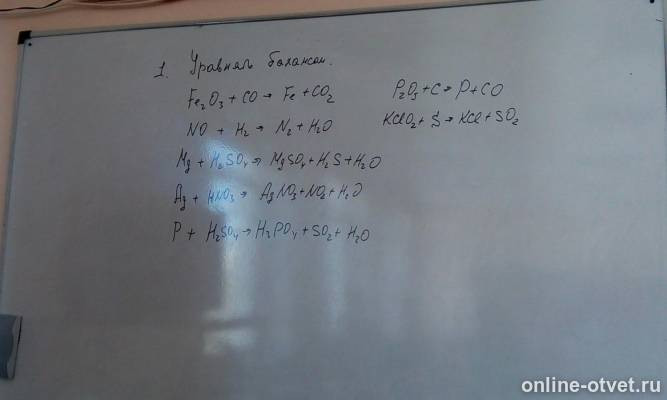 1. Уравнять балансом.
Fe₂O₃ + CO → Fe + CO₂
NO + H₂ → N₂ + H₂O
Mg + H₂SO₄ → MgSO₄ + H₂S + H₂O
Ag + HNO₃ → AgNO₃ + NO₂ + H₂O
P + H₂SO₄ → H₃PO₄ + SO₂ + H₂O
P₂O₅ + C → P + CO
KClO₂ + S → KCl + SO₂
online-otvet.ru